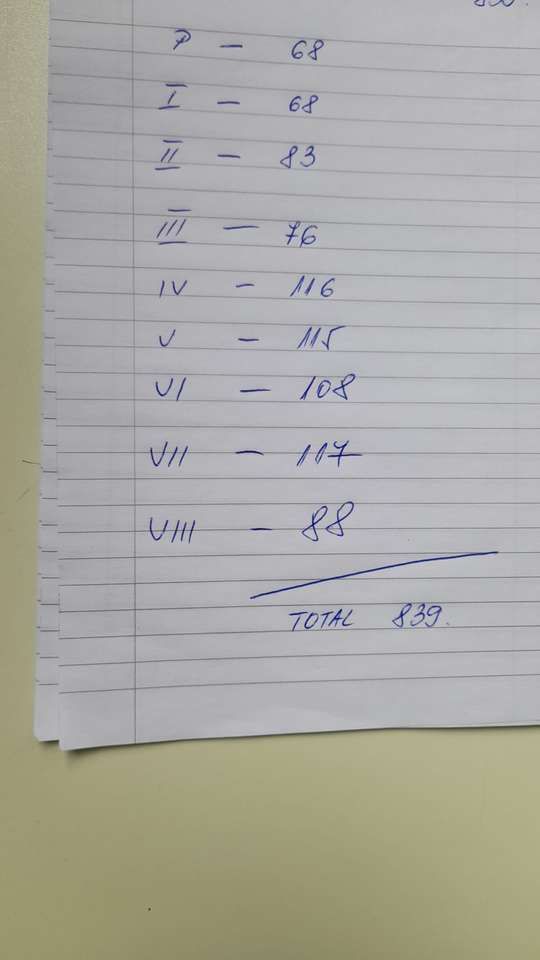 P - 68
I - 68
II - 83
III - 76
IV - 116
V - 115
VI - 108
VII - 117
VIII - 88
TOTAL 839.